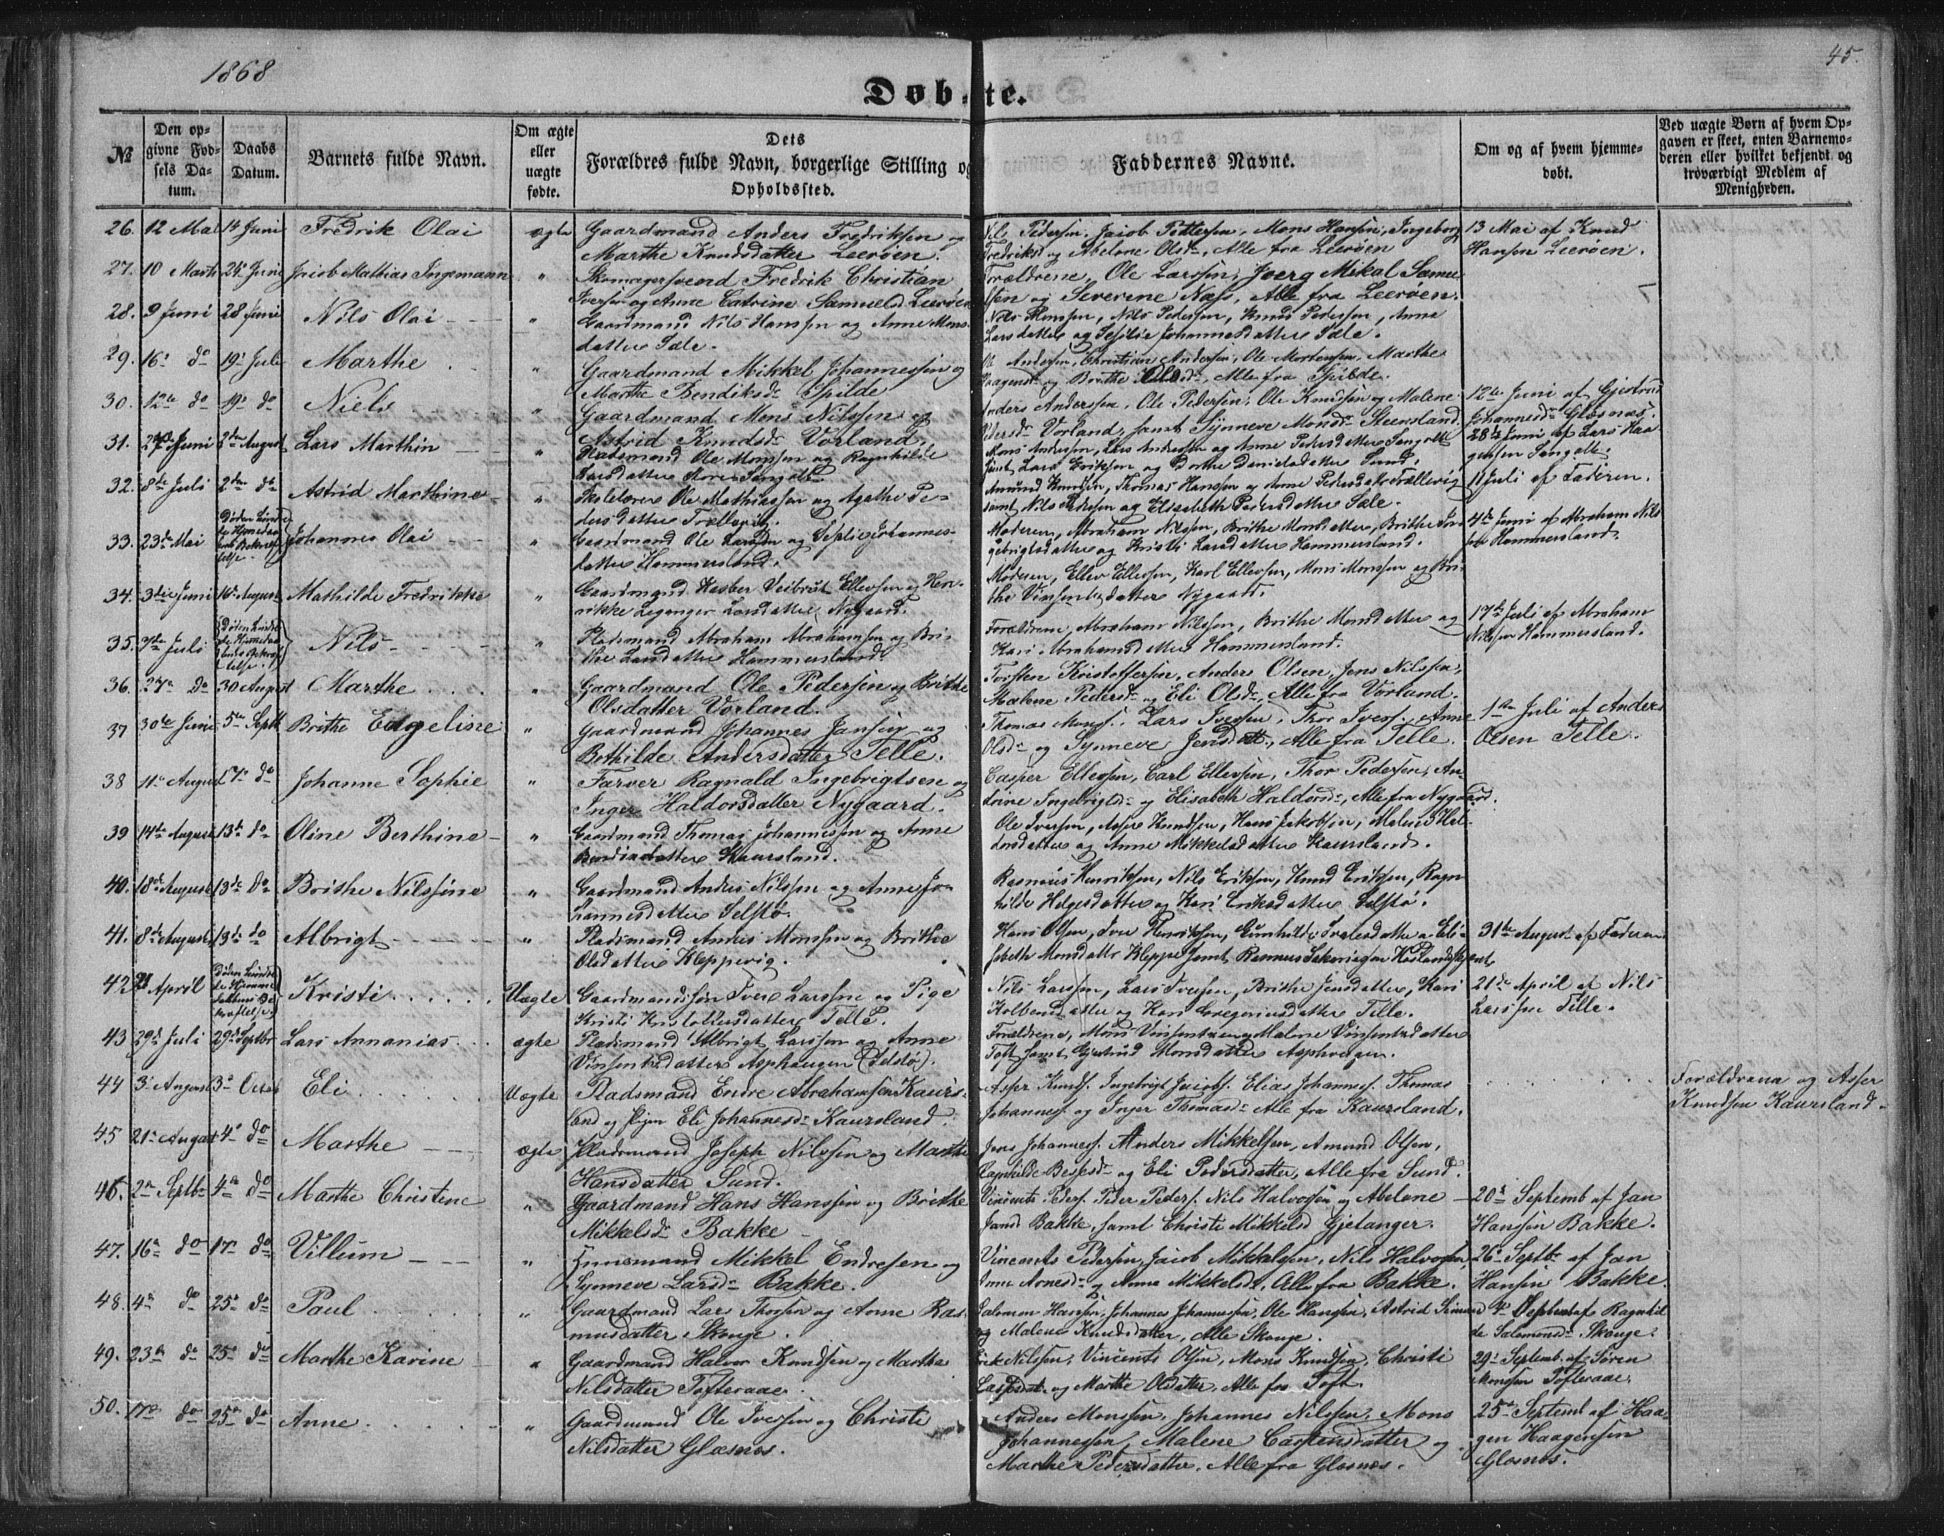 1868
45.
Døbte.
№
Den op-
givne Fød-
sels Da-
tum.
Daabs
Datum.
Barnets fulde Navn.
Om ægte
eller
uægte
fødte.
Dets
Forældres fulde Navn, borgerlige Stilling og
Opholdssted.
Faddernes Navne.
Om og af hvem hjemme-
døbt.
Ved uægte Børn af hvem Op-
gaven er skeet, enten Barnemo-
deren eller hvilket bekjendt og
troværdigt Medlem af
Menigheden.
26. 12 Mai 14 Juni Fredrik Olai ægte Gaardmand Anders Fredriksen og
Marthe Knudsdatter Leerøen.
Nils Pedersen, Jacob Pettersen, Mons Hansen, Ingeborg
Fredriksd og Abelone Olsdr, Alle fra Leerøen
13 Mai af Knud
Hansen Leerøen.
27. 10 Marts Juni Jacob Mathias Ingemann " Skomagersvend Fredrik Christian
Iversen og Anne Catrine Samuelsd Leerøen
Forældrene, Ole Larssen, Joerg Mikal Samu
elsen og Severine Næss, Alle fra Leerøen.
28. 9 Juni 28 Juni Nils Olai " Gaardmand Nils Hanssen og Anne Mons
datter Sæle.
Nils Hanssen, Nils Pedersen, Knud Pedersen, Anna
Larsdatter og Johannesdatter Sæle.
29. 16 do 19 Juli Marthe " Gaardmand Mikkel Johannessen og
Marthe Bendiksdr Spilde
Ole Andersen, Christian Andersen, Ole Mortensen, Marthe
Haagensdr og Brithe Olsdr, Alle fra Spilde.
30. 12te do 19 do Niels " Gaardmand Mons Nilssen og
Astrid Knudsdr Vorland.
Anders Anderssen, Ole Pedersen, Ole Knudsen og Malene
Pedersdr Vorland, samt Synneve Monsdr Steensland.
12te Juni af Gjertrud
Johannesdr Glæsnæs.
31. Juni 2den August Lars Marthin " Ole Monssen og Ragnhilde
Larsdatter
Mons Andersen, Lars Andersen og Anne Pedersdatter
samt Lars Eriksen og Dorthe Danielsdatter Sund.
28de Juni af Lars Haa
gensen
32. 8de Juli 2den do Astrid Marthine " Skolelærer Ole Mathiassen og Agathe Pe-
dersdatter Trællevig.
Amund Knudsen, Thomas Hanssen og Anne Pedersdatter Trællevig
samt Nils Pedersen og Elisabeth Pedersdatter Sæle.
11 Juli af Faderen.
33. 23de Mai Johannes Olai " Gaardmand Ole Larssen og Johannes-
datter Hammersland.
Moderen, Abraham Nilssen, Brithe Monsdatter, Brithe In
gebrigtsdatter og Kristi Larsdatter Hammersland.
4de Juni af Abraham Nils
sen Hammersland.
34. 3die Juni 16 August Mathilde Fredrikke " Gaardmand Kasber Ellevsen og Hen-
rikke Leganger Larsdatter Nygaard.
Moderen, Ellev Ellevsen, Karl Ellevsen, Mons Monssen og Bri
the Vinsentsdatter Nygaard.
35. 7de Juli Nils " Pladsmand Abraham Abrahamsen og Bri-
the Larsdatter Hammersland.
Forældrene, Abraham Nilssen, Brithe Monsdatter og
Kari Abrahamsdatter Hammersland.
17de Juli af Abraham
Nilssen Hammersland.
36. 27 do 30 August Marthe " Gaardmand Ole Pedersen og Brithe
Olsdatter Vorland.
Torsten Kristoffersen, Anders Olsen, Jens Nilssen,
Malene Pedersdr og Eli Olsdr, Alle fra Vorland.
37 30te Juni 5te Septb Brithe Engeline " Gaardmand Johannes Jansen og
Bothilde Andersdatter Telle.
Thomas Monss. Lars Iversen, Thor Iverss. Anne
Olsdr og Synneve Jensdatt., Alle fra Telle.
1ste Juli af Anders
Olsen Telle.
38 11 August 7 do Johanne Sophie " Farver Ragnald Ingebrigtsen og
Inger Haldorsdatter Nygaard.
Casper Ellevsen, Carl Ellevsen, Thor Pedersen, An-
drine Ingebrigtsdr og Elisabeth Haldorsdr, Alle fra Nygaard.
39 14de August 13de do Oline Berthine " Gaardmand Thomas Johannessen og Anne
Kaursland.
Ole Iversen, Asser Knudsen, Hans Jakobsen, Malene
og Anne Mikkelsdatter Kaursland.
40. 18de August 13de do Brithe Nilssine " Gaardmand Anders Nilssen og Anne Jo-
hannesdatter Selstø.
Rasmus Henriksen, Nils Eriksen, Knud Eriksen, Ragn
hilde Helgesdatter og Kari Eriksdatter Selstø.
41. 8de August 13de do Albrigt " Pladsmand Anders Monssen og Brithe
Olsdatter Kleppevig.
Hans Olsen, Iver Henriksen, Gunhilde Iversdatter Eli-
sabeth Monsdatter Kleppe samt Rasmus
31te August af Faderen
42 21 April Kristi Uægte Gaardmandssøn Iver Larssen og Pige
Kristi Kristoffersdatter Telle.
Nils Larssen, Lars Iversen, Brithe Jensdatter, Kari
Kolbensdatter og Kari Gregoriusdatter Telle.
21de April af Nils
Larssen Telle.
43 29de Juli 29de Septbr Lars Annanias ægte Pladsmand Albrigt Larssen og Anne
Vinsentsdatter Asphaugen (Selstø).
Forældrene, Mons Vinsentsen og Malene Vinsentsdatter
Toft samt Gjertrud Monsdatter Asphougen.
44 3 August Eli Uægte Pladsmand Endre Abrahamsen Kaurs-
land og Pigen Eli Johannesdr Kaursland.
Asser Knuds. Ingebrigt Jacobs. Elias Johannes. Thomas
Johanness og Inger Thomasdr Alle fra Kaursland.
Forældrene og Asser
Knudsen Kaursland.
45 21 August 4 do Marthe ægte Pladsmand Joseph Nilssen og Marthe
Hansdatter Sund.
Jens Johanness. Anders Mikkelsen, Amund Olsen,
og Eli Pedersdatter, Alle fra Sund.
46. 2 Septbr 4 do Marthe Christine " Gaardmand Hans Hanssen og Brithe
Mikkelsdr Bakke
Vincents Peders. Peder Peders. Nils Halvorsen og Abelone
Bakke, samt Christi Mikkelsd Gjelanger.
20de Septemb af Jan
Hansen Bakke.
47. 16 do 17 do Villum " Huusmand Mikkel Endresen og
Synneve Larsdr Bakke.
Vincents Pedersen, Jacob Mikkelsen, Nils Halvorsen,
Anne Arnesdr og Anna Mikkelsdt, Alle fra Bakke.
26 Septbr af Jan
Hansen Bakke.
48. 4 do 25 do Paul " Gaardmand Lars Thorsen og Anne Ras-
musdatter Skouge.
Salomon Hansen, Johannes Johannessen, Ole Hansen, Astrid
og Malene Knudsdatter, Alle Skouge.
af Ragnhil
de Salomonsdr Skouge.
49. 23de do 25 do Marthe Karine " Gaardmand Halvor Knudsen og Marthe
Nilsdatter Tofteraae.
Erik Nilssen, Vincents Olsen, Mons Knudsen, Christi
og Marthe Olsdatter, Alle fra Toft.
29 Septemb. af Søren
Monsen Tofteraae.
50. 17 do 25 do Anne " Gaardmand Ole Iversen og Christi
Nilsdatter Glæsnæs.
Anders Monssen, Johannes Nilssen, Mons
Johannessen, Malene Carstensdatter og
Marthe Pedersdatter, Alle fra Glæsnæs.
25de Septemb af Haa-
gen Haagensen
Glæsnæs.